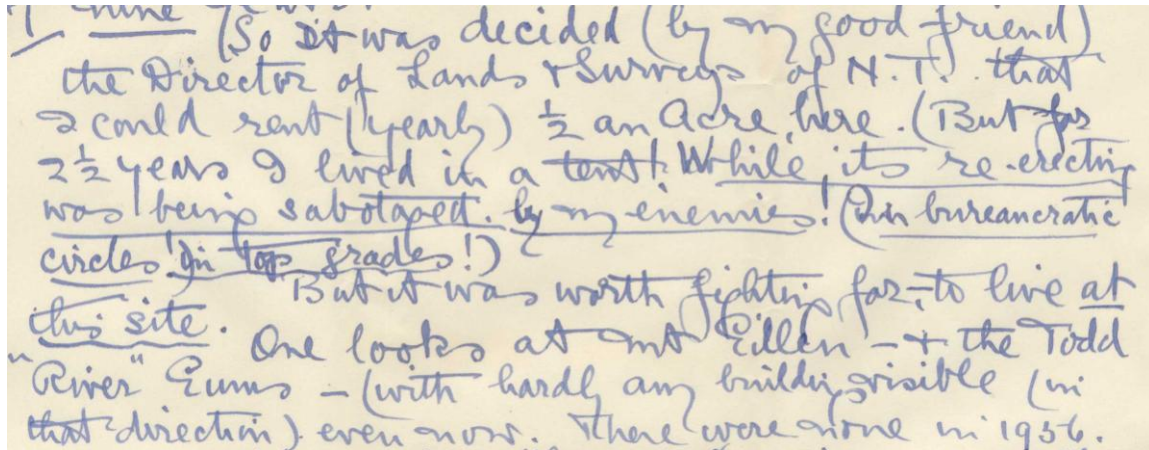 (So It was decided (by my good friend)
the Director of Lands + Surveys of N.T. that
I could rent (yearly) ½ an Acre here. (But for
2½ years I lived in a tent! While its re-erecting
was being sabotaged. by my enemies! (In bureaucratic
circles! in top grades!)
But it was worth fighting for, to live at
this site. One looks at Mt Gillen - + the Todd
"River" Gums - (with hardly any building visible (in
that direction) even now. There were none in 1956.